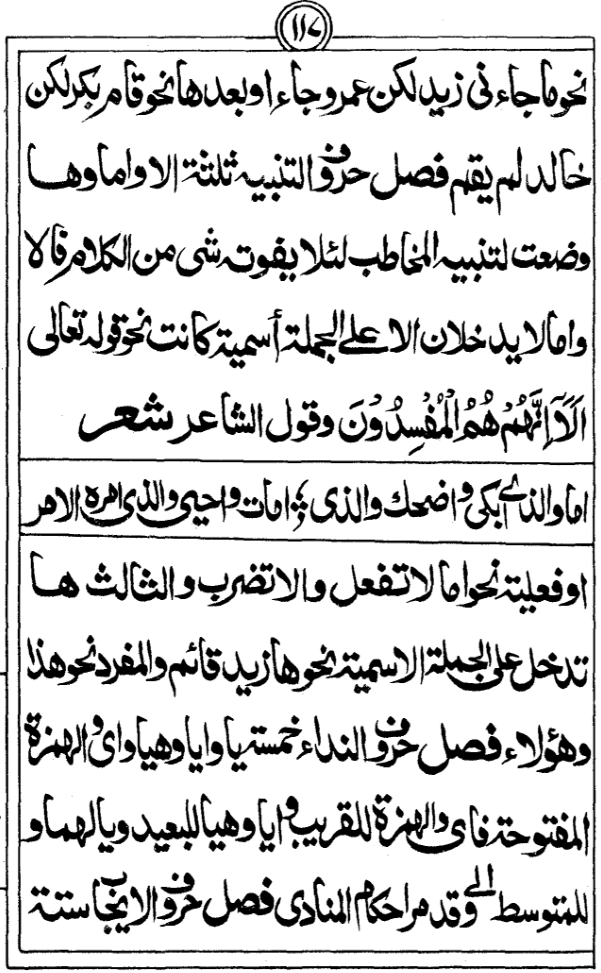 ١١٧
نحو ما جاءنی زيد لكن عمرو جاء او بعدها نحو قام بكر لكن
خالد لم يقم فصل حروف التنبيه ثلثة الا واما وها
وضعت لتنبيه المخاطب لئلا يفوته شی من الكلام فالا
واما لا يدخلان الا علی الجملة أسمية كانت نحو قوله تعالی
اَلَآ اِنَّهُمْ هُمُ الْمُفْسِدُوْنَ وقول الشاعر شعر
اما والذی ابكی واضحك والذی ؛ امات واحيی والذی امره الامر
او فعلية نحو اما لا تفعل والا تضرب والثالث ها
تدخل علی الجملة الاسمية نحو ها زيد قائم والمفرد نحو هذا
وهؤلاء فصل حروف النداء خمسة يا وايا وهيا وای والهمزة
المفتوحة فای والهمزة للقريب وايا وهيا للبعيد ويا لهما و
للمتوسط الی وقد مر احكام المنادی فصل حروف الايجاب ستة